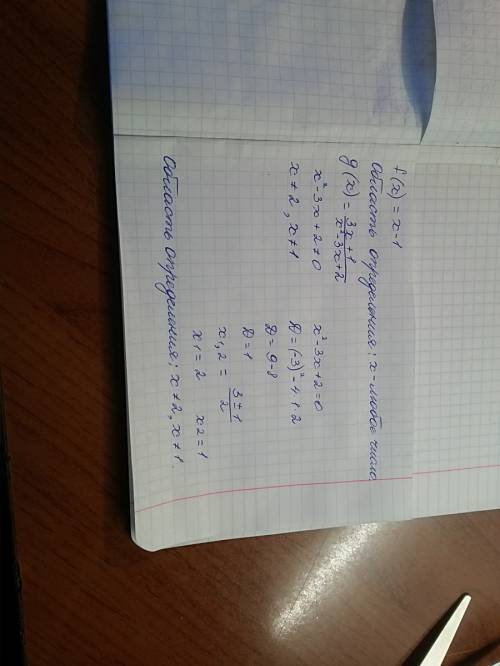 f(x) = x-1
Область определения: x-любое число.
g(x) = \frac{3x+1}{x²-3x+2}
x²-3x+2≠0
x≠2, x≠1
x²-3x+2=0
D=(-3)²-4·1·2
D=9-8
D=1
x1,2 = \frac{3±1}{2}
x1=2 x2=1
Область определения: x≠2, x≠1.